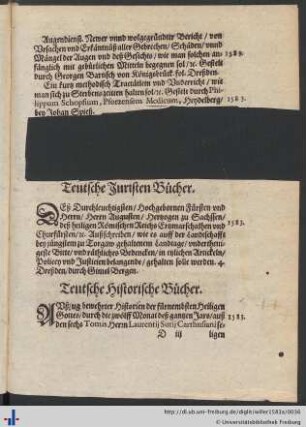 Augendienst. Newer vnnd wolgegründter Bericht/ von
Vrsachen vnd Erkäntnüß aller Gebrechen/ Schäden/ vnnd
Mängel der Augen vnd deß Gesichts/ wie man solchen an- 1583.
fänglich mit gebürlichen Mitteln begegnen sol/ ꝛc. Gestelt
durch Georgen Bartisch von Königsbrück fol. Dreßden.
Ein kurtz methodisch Tractätlein vnd Vnderricht/ wie
man sich zu Sterbens zeitten halten sol/ ꝛc. Gestelt durch Phi-
lippum Schopfium, Phortzensem Medicum, Heydelberg/ 1583.
bey Johan Spieß.
Teutsche Juristen Bücher.
DEß Durchleuchtigsten/ Hochgebornen Fürsten vnd
Herrn/ Herrn Augusten/ Hertzogen zu Sachssen/
deß heiligen Römischen Reichs Ertzmarschalhen vnd 1583.
Churfürsten/ ꝛc. Außschreiben/ wie es auff der Landschafft
bey jüngstem zu Torgaw gehaltenem Landtage/ vndertheni-
geste Bitte/ vnd räthliches Bedencken/ in etlichen Articklen/
Policey vnd Justicien belangende/ gehalten solle werden. 4.
Dreßden/ durch Gimel Bergen.
Teutsche Historische Bücher.
AVßzug bewehrter Historien der fürnembsten Heiligen
Gottes/ durch die zwölff Monat deß gantzen Jars/ auß 1583.
den sechs Tomis Herrn Laurentij Surij Carthusiani se-
D iij ligen
http://dl.ub.uni-freiburg.de/diglit/willer1583a/0036
© Universitätsbibliothek Freiburg